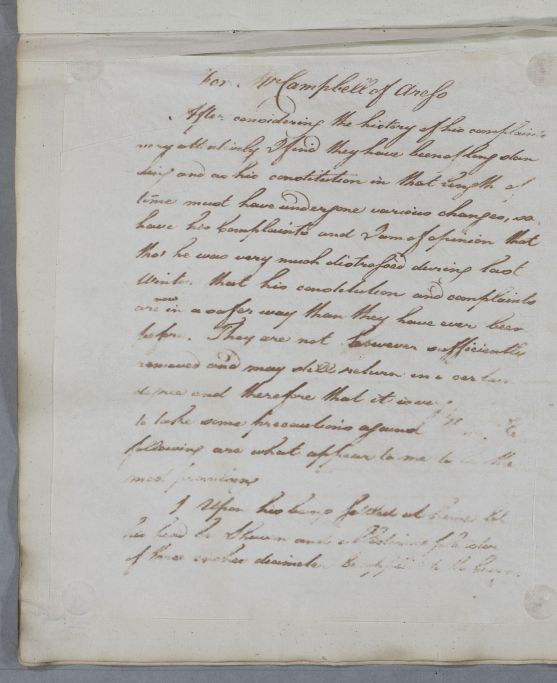 For Mr Campbell of
After considering the history of his complaints
very attentively I find they have been of long stan
ding and as his constitution in that length of
time must have undergone various changes, so
have his Complaints and I am of opinion that
tho' he was very much distressed during last
Winter that his constitution and complaints
are now in a safer way than they have ever been
before. They are not however sufficiently
removed and may still return in a certain
degree and therefore that it is
to take some precautions against
following are what appear to me to be the
most
1 Upon his being at home let
his head be Shaven and a Blistering plaster
of three inches diameter be to the